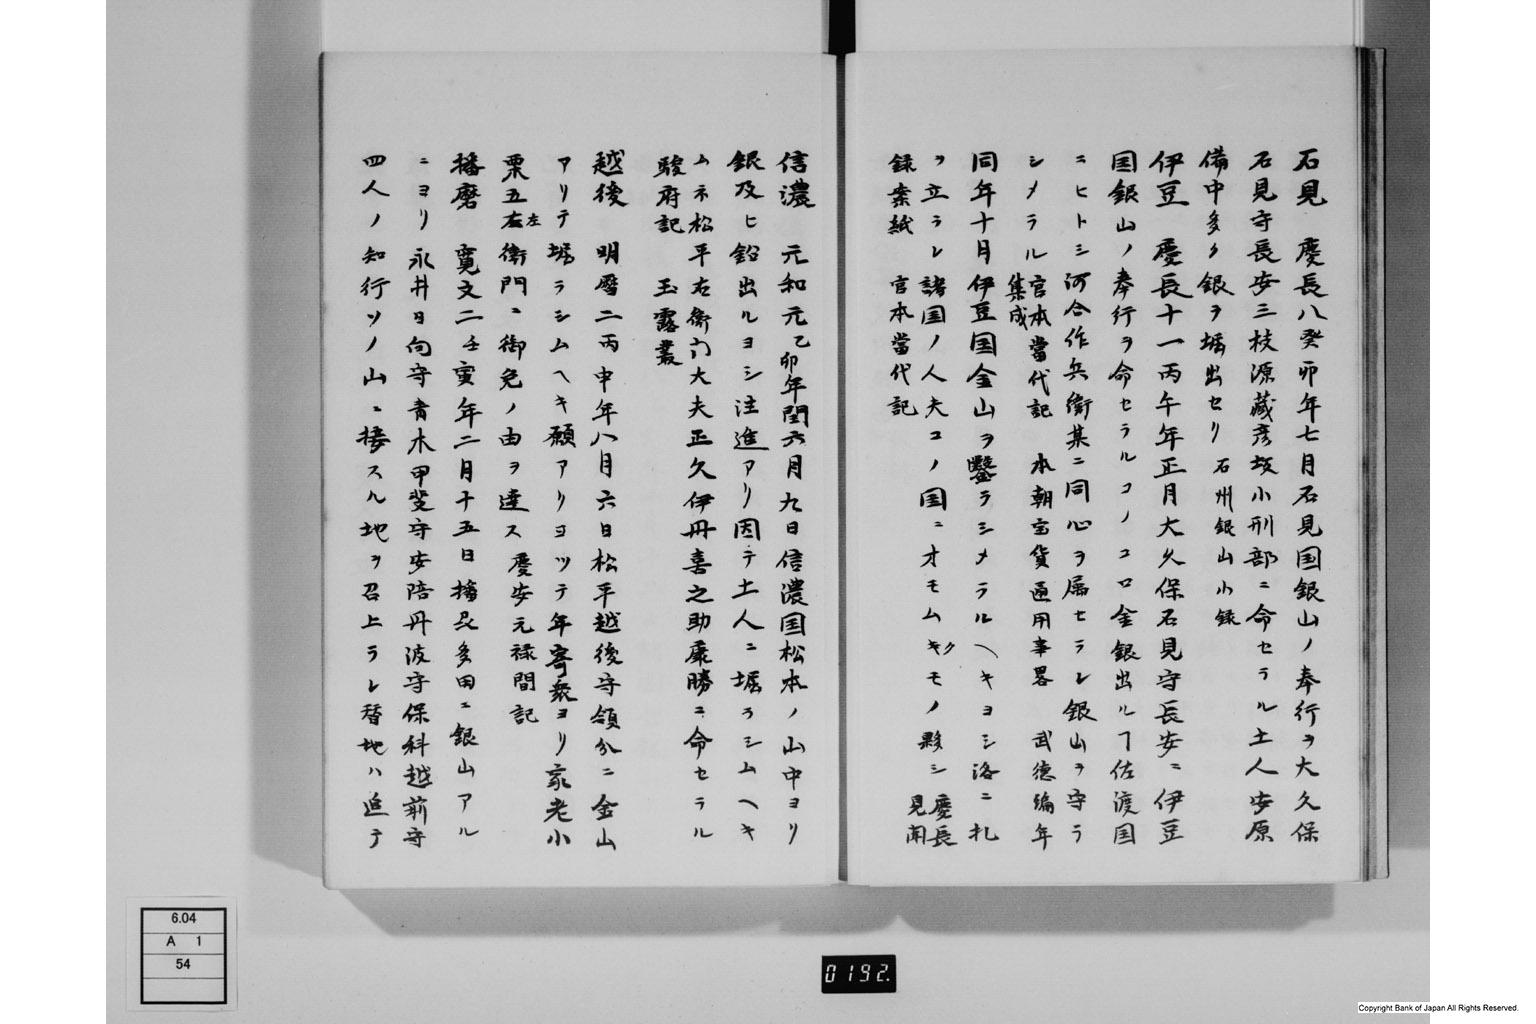 石見　慶長八癸卯年七月石見国銀山ノ奉行ヲ大久保
石見守長安三枝源蔵彦坂小刑部ニ命セラル土人安原
備中多ク銀ヲ堀出セリ　石州銀山小録
伊豆　慶長十一丙午年正月大久保石見守長安ニ伊豆
国銀山ノ奉行ヲ命セラルコノコロ金銀出ルヿ佐渡国
ニヒトシ河合作兵衛某ニ同心ヲ属セラレ銀山ヲ守ラ
シメラル　官本當代記　本朝宝貨通用事略　武徳編年
集成
同年十月伊豆国金山ヲ鑿ラシメラルヘキヨシ洛ニ札
ヲ立ラレ諸国ノ人夫コノ国ニオモムキクモノ夥シ　慶長
見聞
録案紙　官本當代記
信濃　元和元乙卯年閏六月九日信濃国松本ノ山中ヨリ
銀及ヒ鉛出ルヨシ注進アリ因テ土人ニ堀ラシムヘキ
ムネ松平右衛門大夫正久伊丹喜之助康勝ニ命セラル
駿府記　玉露叢
越後　明暦二丙申年八月六日松平越後守領分ニ金山
アリテ堀ラシムヘキ願アリヨツテ年寄衆ヨリ家老小
栗五右左衛門ニ御免ノ由ヲ達ス　慶安元禄間記
播磨　寛文二壬寅年二月十五日播刕多田ニ銀山アル
ニヨリ永井日向守青木甲斐守安陪丹波守保科越前守
四人ノ知行ソノ山ニ接スル地ヲ召上ラレ替地ハ追テ
6.04
A 1
54
0192.
Copyright Bank of Japan All Rights Reserved.